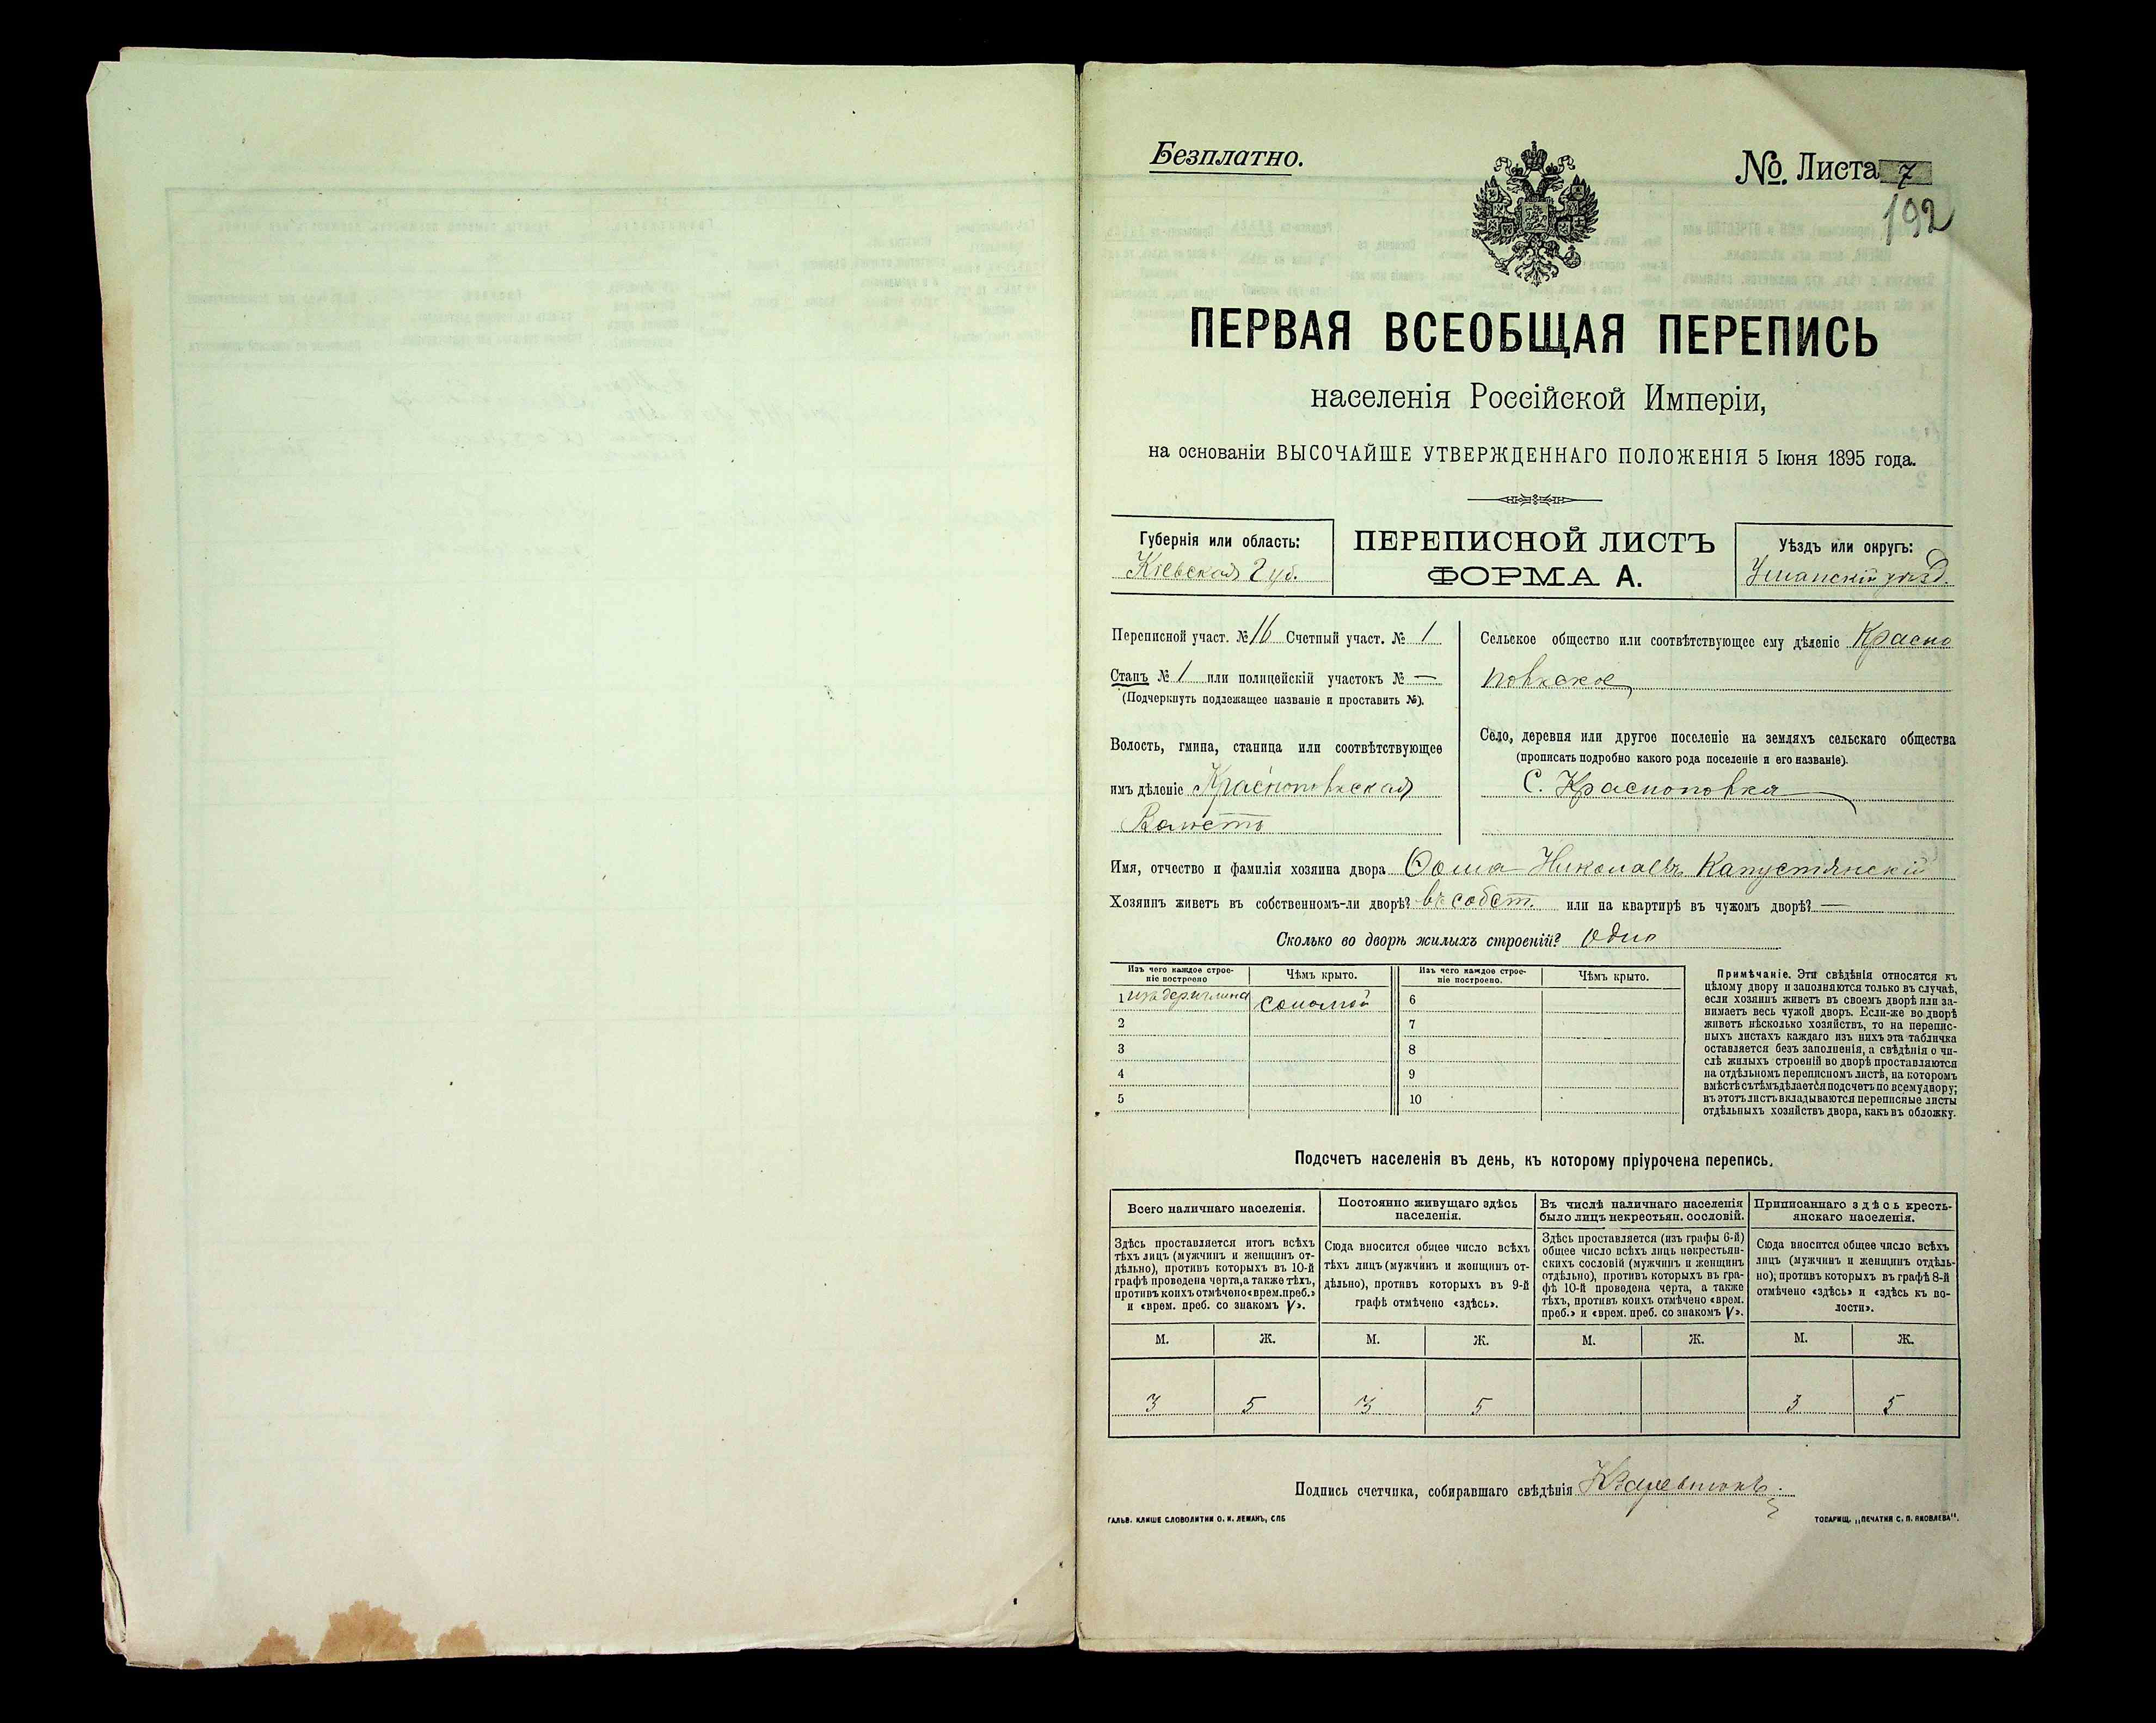 Безплатно.
№ Листа 7
192
ПЕРВАЯ ВСЕОБЩАЯ ПЕРЕПИСЬ
населенія Россійской Имперіи,
на основаніи ВЫСОЧАЙШЕ УТВЕРЖДЕННАГО ПОЛОЖЕНІЯ 5 Іюня 1895 года.
Губернія или область:
Кіевская губ.
ПЕРЕПИСНОЙ ЛИСТЪ
ФОРМА А.
Уѣздъ или округъ:
Уманскій уѣзд.
Переписной участ. № 16 Счетный участ. № 1
Станъ № 1 или полицейскій участокъ № —
(Подчеркнуть подлежащее названіе и проставить №).
Волость, гмина, станица или соотвѣтствующее
имъ дѣленіе Краснопонвская
Волость
Сельское общество или соотвѣтствующее ему дѣленіе Красно
повкское
Село, деревня или другое поселеніе на земляхъ сельскаго общества
(прописать подробно какого рода поселеніе и его названіе).
С. Краснополка
Имя, отчество и фамилія хозяина двора Ѳома Николаевъ Капустянскій
Хозяинъ живетъ въ собственномъ-ли дворѣ? въ собст. или на квартирѣ въ чужомъ дворѣ? —
Сколько во дворѣ жилыхъ строеній? одно
Изъ чего каждое строе-
ніе построено
Чѣмъ крыто.
Изъ чего каждое строе-
ніе построено.
Чѣмъ крыто.
1 изъ дер. и глины соломой 6
2 7
3 8
4 9
5 10
Примѣчаніе. Эти свѣдѣнія относятся къ
цѣлому двору и заполняются только въ случаѣ,
если хозяинъ живетъ въ своемъ дворѣ или за-
нимаетъ весь чужой дворъ. Если-же во дворѣ
живетъ нѣсколько хозяйствъ, то на перепис-
ныхъ листахъ каждаго изъ нихъ эта табличка
оставляется безъ заполненія, а свѣдѣнія о чи-
слѣ жилыхъ строеній во дворѣ проставляются
на отдѣльномъ переписномъ листѣ, на которомъ
вмѣстѣ съ тѣмъ дѣлается подсчетъ по всему двору;
въ этотъ листъ вкладываются переписные листы
отдѣльныхъ хозяйствъ двора, какъ въ обложку.
Подсчетъ населенія въ день, къ которому пріурочена перепись.
Всего наличнаго населенія.
Постоянно живущаго здѣсь
населенія.
Въ числѣ наличнаго населенія
было лицъ некрестьян. сословій.
Приписаннаго здѣсь кресть-
янскаго населенія.
Здѣсь проставляется итогъ всѣхъ
тѣхъ лицъ (мужчинъ и женщинъ от-
дѣльно), противъ которыхъ въ 10-й
графѣ проведена черта, а также тѣхъ,
противъ коихъ отмѣчено «врем. преб.»
и «врем. преб. со знакомъ V».
Сюда вносится общее число всѣхъ
тѣхъ лицъ (мужчинъ и женщинъ от-
дѣльно), противъ которыхъ въ 9-й
графѣ отмѣчено «здѣсь».
Здѣсь проставляется (изъ графы 6-й)
общее число всѣхъ лицъ некрестьян-
скихъ сословій (мужчинъ и женщинъ
отдѣльно), противъ которыхъ въ гра-
фѣ 10-й проведена черта, а также
тѣхъ, противъ коихъ отмѣчено «врем.
преб.» и «врем. преб. со знакомъ V».
Сюда вносится общее число всѣхъ
лицъ (мужчинъ и женщинъ отдѣль-
но), противъ которыхъ въ графѣ 8-й
отмѣчено «здѣсь» и «здѣсь къ во-
лости».
М. Ж. М. Ж. М. Ж. М. Ж.
3 5 3 5 3 5
Подпись счетчика, собиравшаго свѣдѣнія
ГАЛЬВ. КЛИШЕ СЛОВОЛИТНИ О. И. ЛЕМАНЪ, СПБ
ТОВАРИЩ. „ПЕЧАТНЯ С. П. ЯКОВЛЕВА".